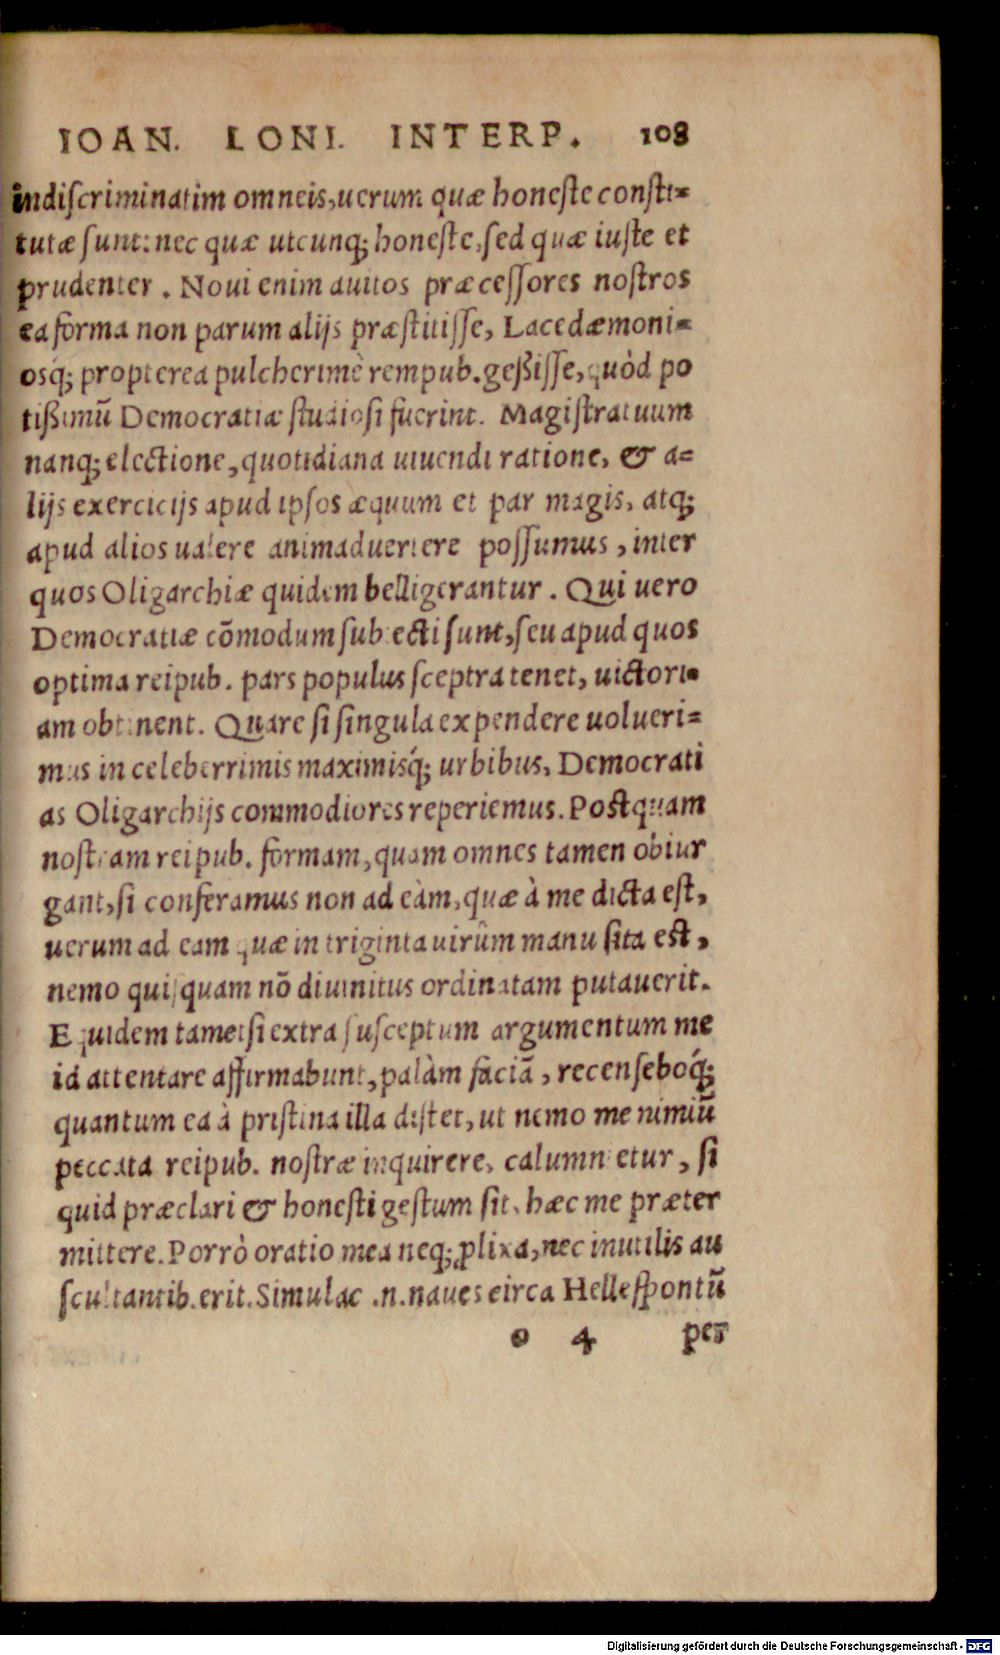 IOAN. LONI. INTERP. 108
indiſcriminatim omneis, uerum quæ honeſte conſti=
tutæ ſunt: nec quæ utcunq; honeſte, ſed quæ iuſte et
prudenter. Noui enim auitos præceſſores noſtros
ea forma non parum alijs præſtitiſſe, Lacedæmoni=
osq́; propterea pulcherimè rempub. geßiſſe, quòd po
tißimũ Democratiæ ſtudioſi fuerint. Magiſtratuum
nanq; electione, quotidiana uiuendi ratione, & a=
lijs exercicijs apud ipſos æquum et par magis, atq;
apud alios ualere animaduertere poſſumus, inter
quos Oligarchiæ quidem belligerantur. Qui uero
Democratiæ cõmodum ſubiecti ſunt, ſeu apud quos
optima reipub. pars populus ſceptra tenet, uictori=
am obtinent. Quare ſi ſingula expendere uolueri=
mus in celeberrimis maximisq́; urbibus, Democrati
as Oligarchijs commodiores reperiemus. Poſtquam
noſtram reipub. formam, quam omnes tamen obiur
gant, ſi conferamus non ad eàm, quæ à me dicta eſt,
uerum ad eam quæ in triginta uirûm manu ſita eſt,
nemo quiſquam nõ diuinitus ordinatam putauerit.
Equidem tametſi extra ſuſceptum argumentum me
id attentare affirmabunt, palàm faciã, recenſeboq́;
quantum ea à priſtina illa diſtet, ut nemo me nimiũ
peccata reipub. noſtræ inquirere, calumnietur, ſi
quid præclari & honeſti geſtum ſit, hæc me præter
mittere. Porrò oratio mea neq; ꝓlixa, nec inutilis au
ſcultantib. erit. Simulac .n. naues circa Helleſpontũ
o 4 per
Digitalisierung gefördert durch die Deutsche Forschungsgemeinschaft - DFG